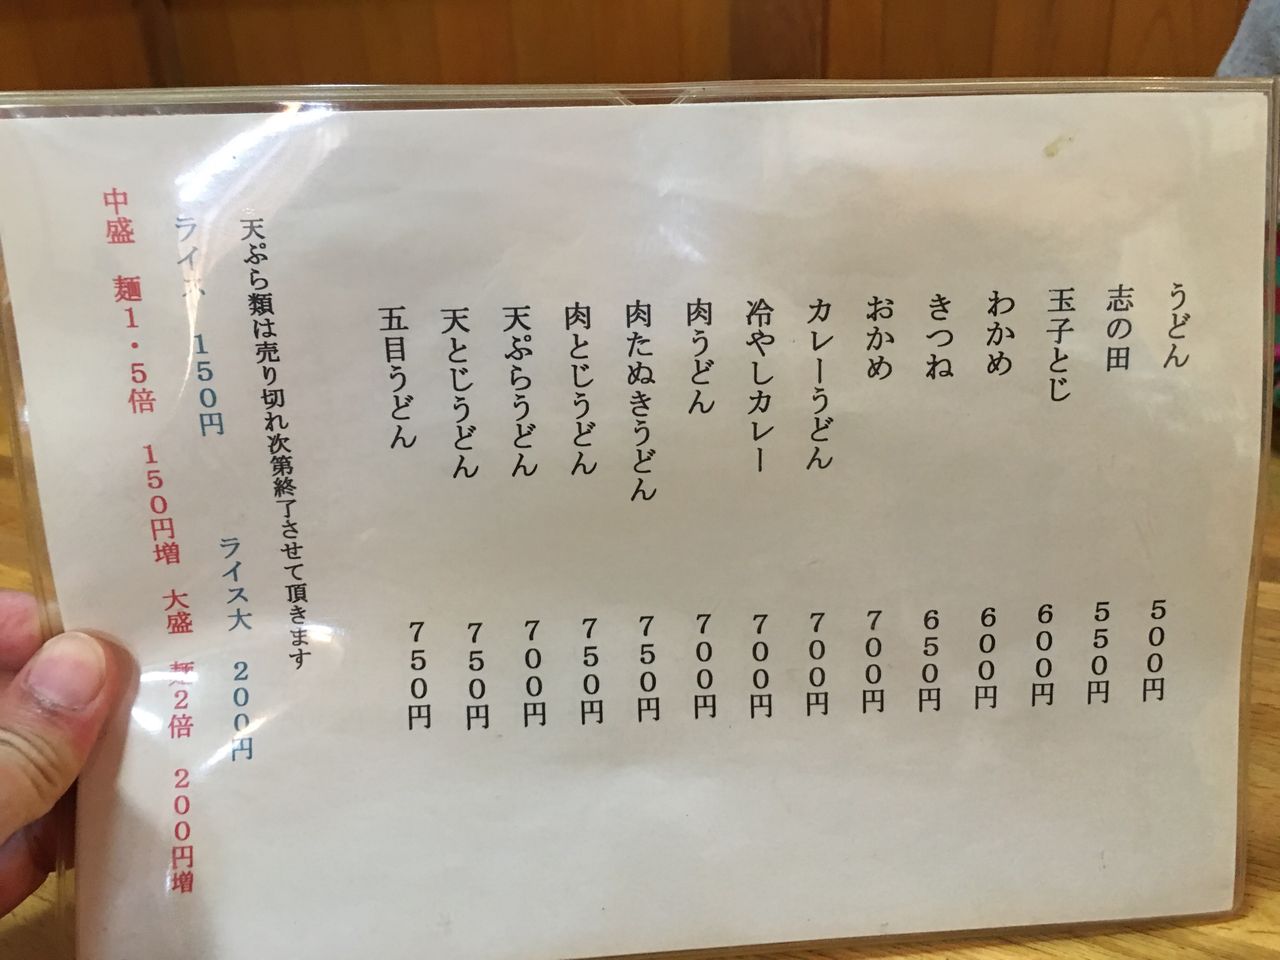 うどん 500円
志の田 550円
玉子とじ 600円
わかめ 600円
きつね 650円
おかめ 700円
カレーうどん 700円
冷やしカレー 700円
肉うどん 700円
肉たぬきうどん 750円
肉とじうどん 750円
天ぷらうどん 700円
天とじうどん 750円
五目うどん 750円
天ぷら類は売り切れ次第終了させて頂きます
ライス 150円 ライス大 200円
中盛 麺1・5倍 150円増 大盛 麺2倍 200円増